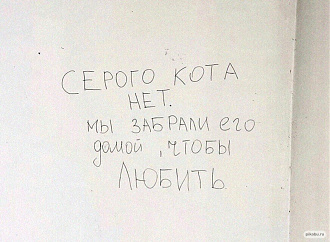 СЕРОГО КОТА
НЕТ.
МЫ ЗАБРАЛИ ЕГО
домой, ЧТОБЫ
ЛЮБИТЬ
pikabu.ru